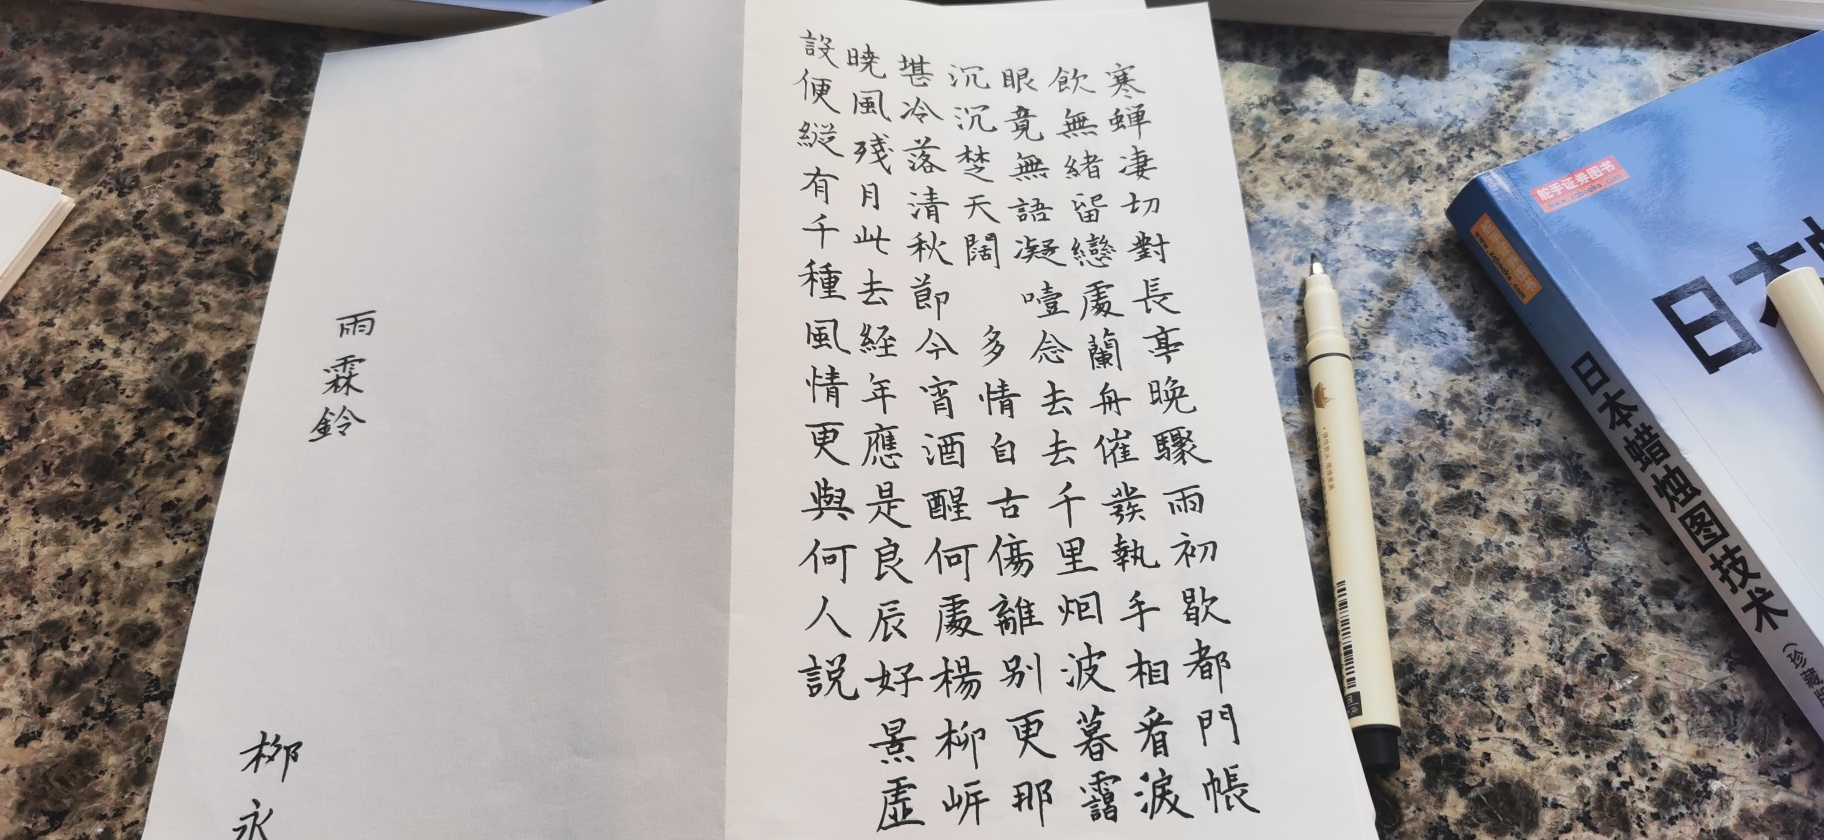 寒蝉凄切對長亭晚驟雨初歇都門帳
飲無緒留戀處蘭舟催發執手相看淚
眼竟無語凝噎念去去千里烟波暮靄
沉沉楚天闊 多情自古傷離别更那
堪冷落清秋節今宵酒醒何處楊柳岸
曉風殘月此去経年應是良辰好景虛
設便縱有千種風情更與何人説
雨霖鈴
柳永
舵手证券图书
日本
日本蜡烛图技术